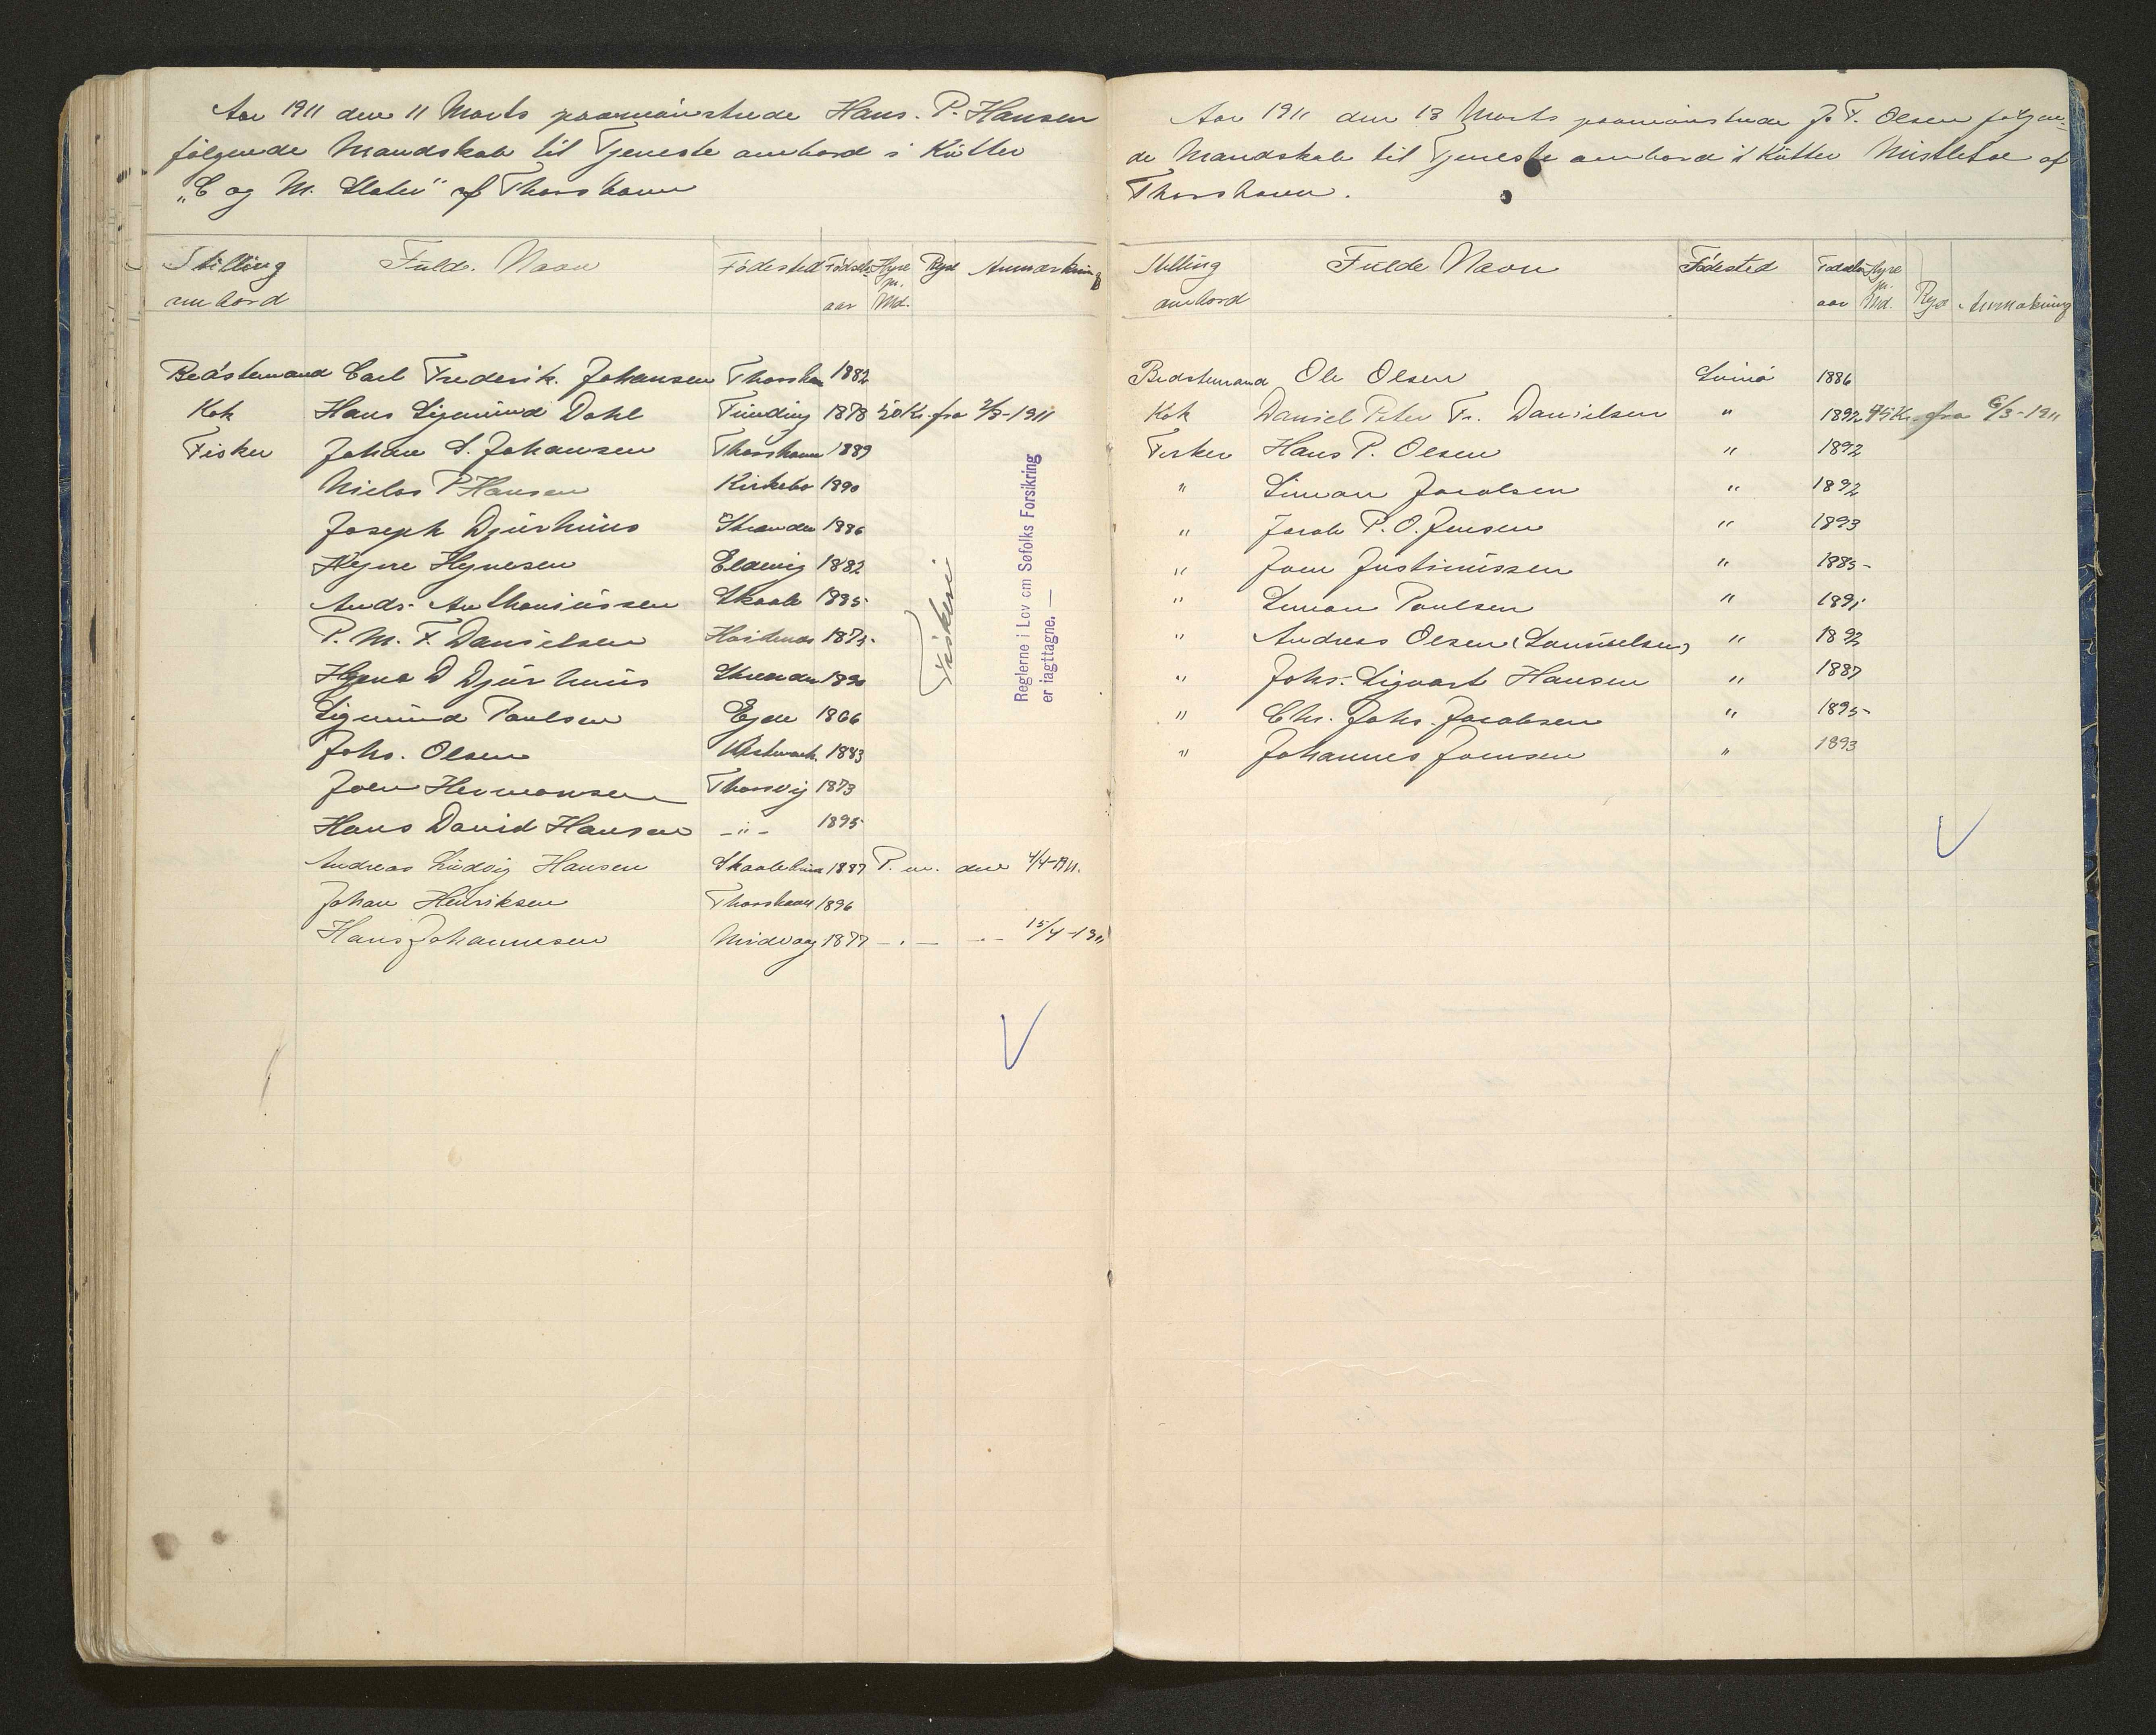 Aar 1911 den 11 Marts paamønstrede Hans. P. Hansen
følgende Mandskab til Tjeneste ombord i Kutter
„C og M. Slater" af Thorshavn
Stilling ombord Fulde Navn Fødested Fødselsaar Hyre pr. Md. Rejse Anmærkning
Bedstemand Carl Frederik. Johansen Thorshavn 1882
Kok Hans Sigmund Dahl Funding 1878 50 Kr. fra 2/3-1911
Fisker Johan S. Johansen Thorshavn 1889
Niclas P Hansen Kirkebø 1890
Joseph Djurhuus Strander 1886
Høgne Hognesen Eldevig 1882
Andr. Anthoniussen Skaale 1885
P. M. F. Danielsen Hoidenæs 1875
Høgna D Djurhuus Strender 1890
Sigmund Poulsen Ejde 1866
Johs. Olsen Vestmanh. 1883
Joen Hermansen Thorsvig 1873
Hans David Hansen -"- 1895
Andreas Ludvig Hansen 1887 P. m. den 4/4-1911.
Johan Henriksen Thorshavn 1896
Hans Johannesen Midvaag 1877 -.- -.- 15/4-1911
Fiskeri
Reglerne i Lov om Søfolks Forsikring
er iagttagne. —
Aar 1911 den 13 Marts paamønstrede J. F. Olsen følgen-
de Mandskab til Tjeneste ombord i Kutter Mistletoe af
Thorshavn.
Stilling ombord Fulde Navn Fødested Fødselsaar Hyre pr. Md. Rejse Anmærkning
Bedstemand Ole Olsen Svinø 1886
Kok Daniel Peter Fr. Danielsen " 1892 45 Kr. fra 6/3-1911
Fisker Hans P. Olsen " 1892
" Simon Jacobsen " 1892
" Jacob P. O. Jensen " 1893
" Joen Justinussen " 1885
" Simon Poulsen " 1891
" Andreas Olsen (Samuelsen) " 1892
" Johs. Sigvart Hansen " 1887
" Chr. Johs. Jacobsen " 1895
" Johannes Joensen " 1893